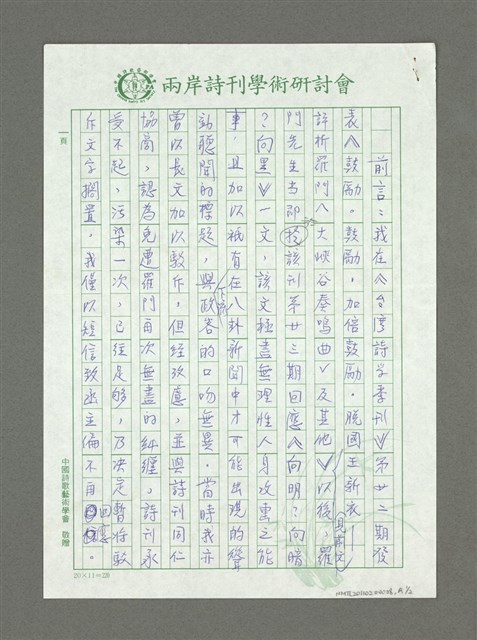 兩岸詩刊學術研討會
前言：我在《台灣詩學季刊》第廿二期發
表《鼓勵。鼓勵，加倍鼓勵。脫國王新衣——
評析羅門〈大峽谷奏鳴曲〉及其他》以後，羅
門先生當即於該刊第廿三期回應《向明？向暗
？向黑》一文，該文極盡無理性人身攻訐之能
事，且加以祇有在八卦新聞中才可能出現的聳
動聽聞的標題，與政客的口吻無異。當時我亦
曾以長文加以駁斥，但經攷慮，並與詩刊同仁
協商，認為免遭羅門再次無盡的糾纏，詩刊承
受不起，污染一次，已經足夠，乃決定暫將駁
斥文字擱置，我僅以短信致函主編不再回應。
見前文
下流
一頁
中國詩歌藝術學會 敬贈
20×11=220